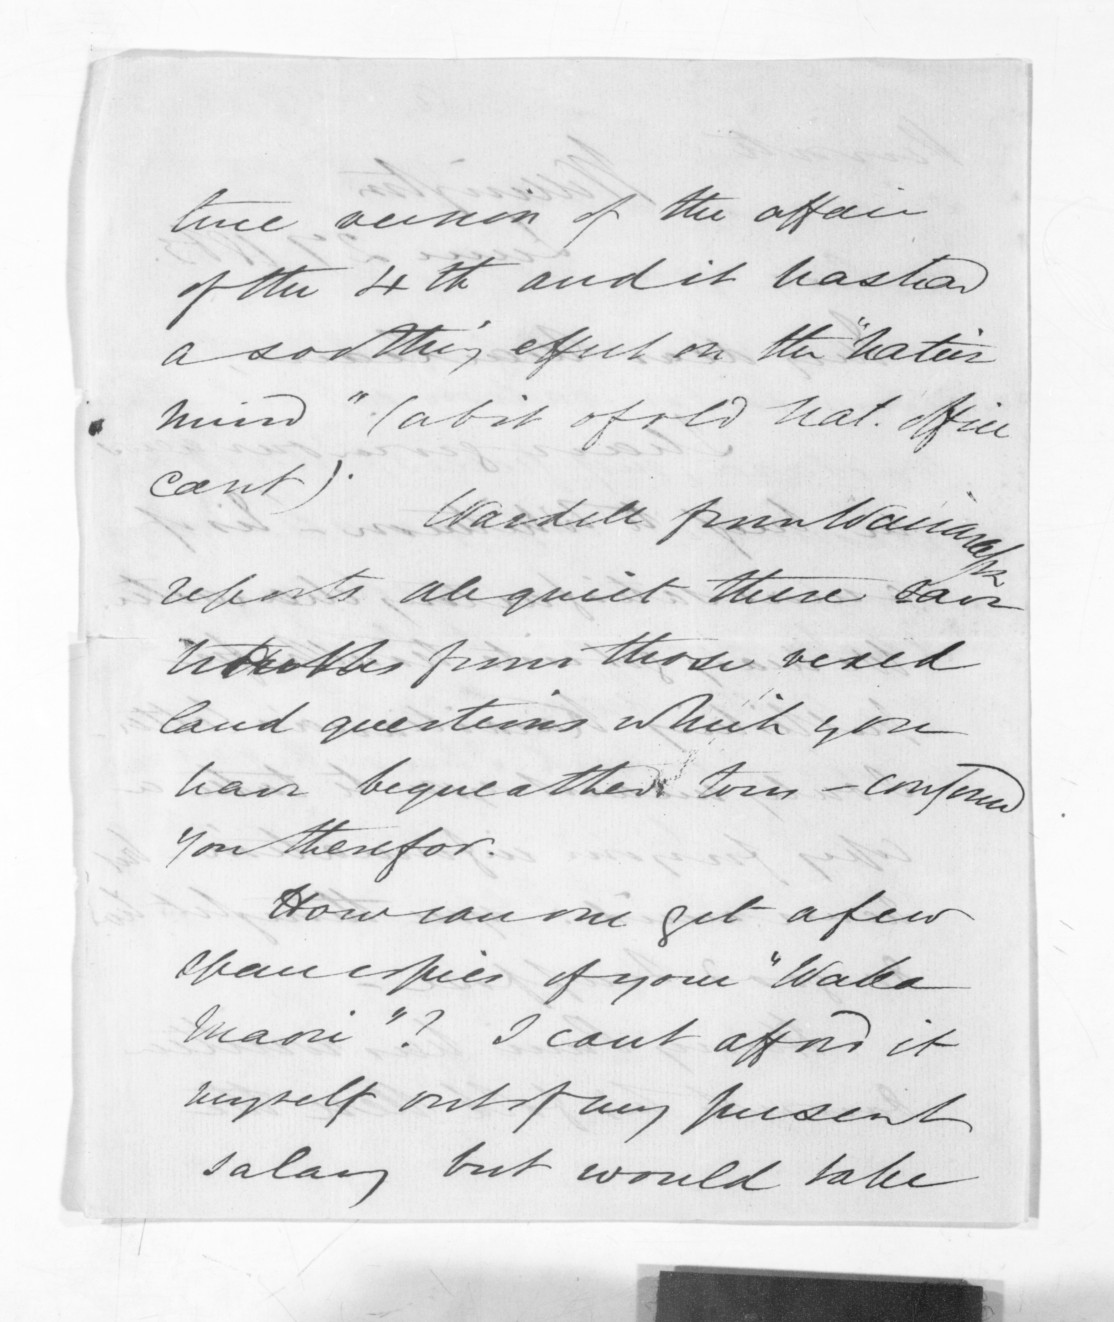 true version of the affair
of the 4th and it has had
a soothing effect on the "Native
mind" (a bit of old Nat. Office
cant).
Wardell from Wairarapa
reports all quiet there save
troubles from those vexed
land questions which you
have bequeathed to us - confound
you therefor.
How can one get a few
spare copies of your "Waka
Maori"? I cant afford it
myself out of my present
salary but would take